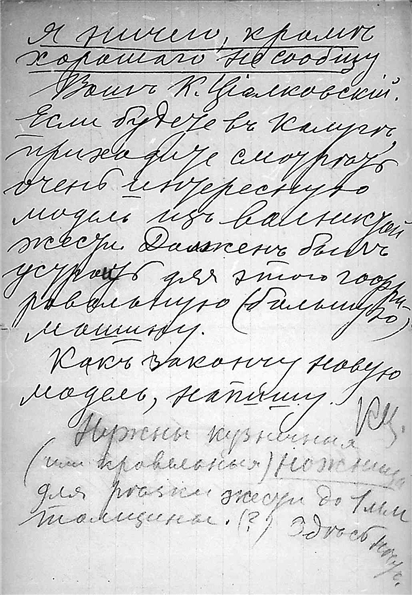 Я ничего, кромѣ
хорошаго не сообщу
Вашъ К. Ціалковскій.
Если будете въ Калугѣ,
приходите смотрѣть
очень интересную
модель изъ волнистой
жести. Долженъ былъ
устроить для этого гофри-
ровальную (большую)
машину.
Какъ закончу новую
модель, напишу.
КЦ.
Нужны кузнечныя
(или кровельныя) ножницы
для рѣзки жести до 1 мм
толщины. (?) Здѣсь